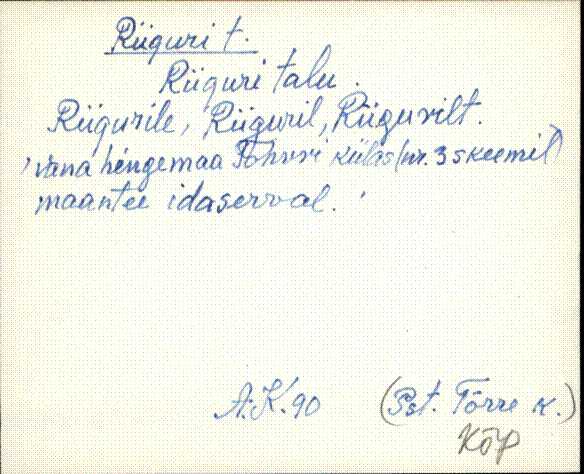 Riiguri t.
Riiguri talu.
Riigurile, Riiguril, Riigurilt.
'vana hingemaa Tohvri külas (nr. 3 skeemil)
maantee idaserval.'
A.K. 90 (Pst. Tõrre k.)
Kõp